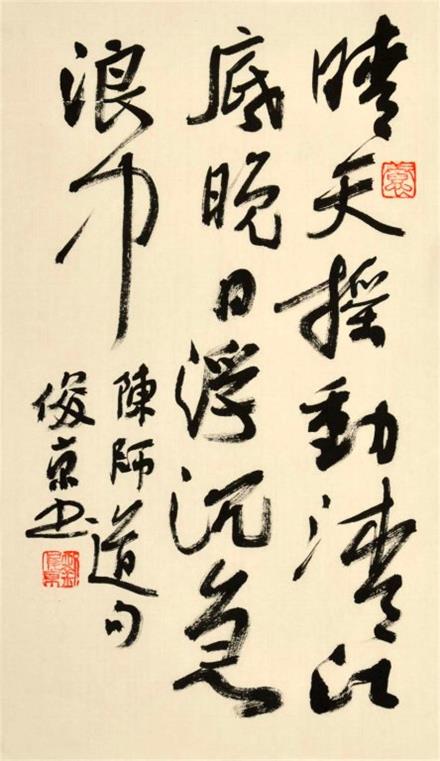 晴天摇動清江
底晚日浮沉急
浪中
陳師道句
俊京书